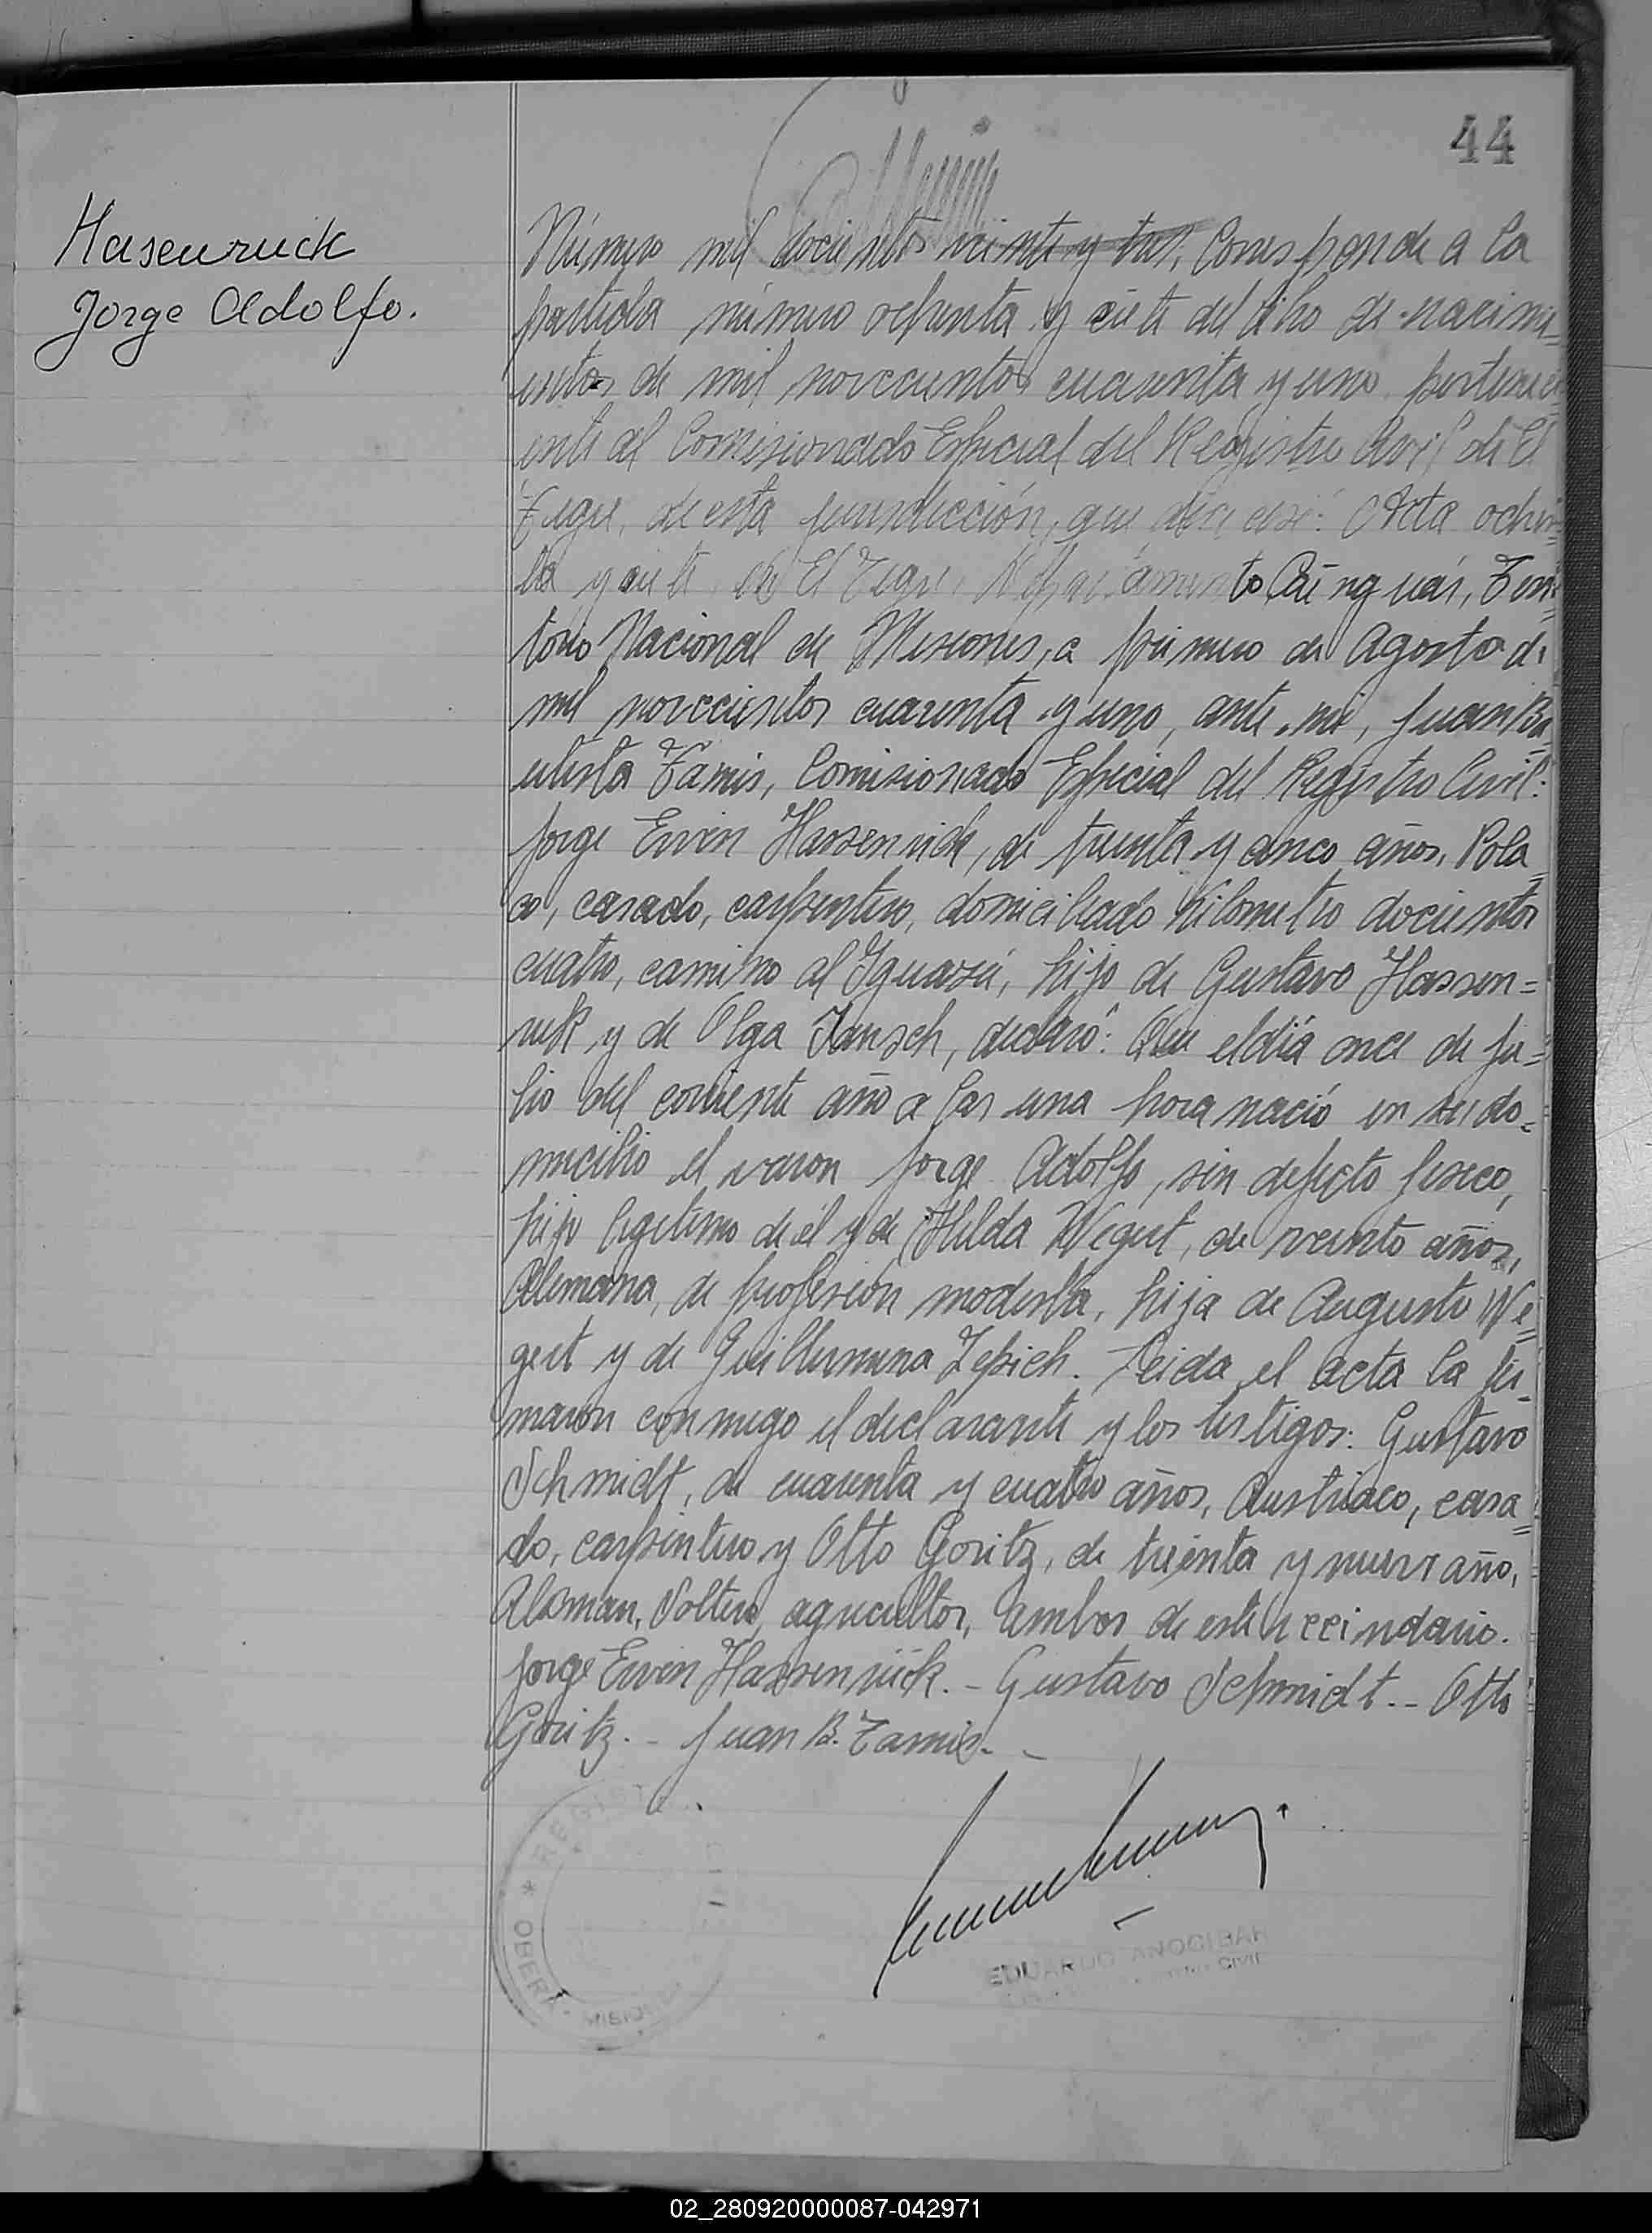 44
Hasenruck
Jorge Adolfo.
Número mil docientos veinte y tres, Corresponde a la
partida número ochenta y siete del libro de nacimi=
entos de mil novecientos cuarenta y uno perteneci=
ente al Comisionado Especial del Registro Civil de El
Tigre, de esta jurisdicción, que dice así: Acta ochen=
ta y siete. En El Tigre, Departamento Cainguás, Terri=
torio Nacional de Misiones, a primero de Agosto de
mil novecientos cuarenta y uno, ante mi, Juan Ba
utista Tamis, Comisionado Especial del Registro Civil:
Jorge Ervin Hassenrück, de treinta y cinco años, Pola=
co, casado, carpintero, domiciliado Kilometro docientos
cuatro, camino al Iguazú, hijo de Gustavo Hassen=
ruk y de Olga Jansch, declaró: Que el día once de ju=
lio del corriente año a las una hora nació en su do=
micilio el varon Jorge Adolfo, sin defecto fisico,
hijo legitimo de él y de Hilda Wegert, de veinte años,
Alemana, de profesión modista, hija de Augusto We=
gert y de Guillermina Zepich. Leida el acta la fir=
maron conmigo el declarante y los testigos: Gustavo
Schmidt, de cuarenta y cuatro años, Austriaco, casa=
do, carpintero y Otto Goritz, de treinta y nueve año,
Aleman, Soltero, agricultor, ambos de este veccindario.
Jorge Ervin Hassenrück. - Gustavo Schmidt. - Otto
Goritz. - Juan B. Tamis. -
REGIST
OBERA - MISIONES
EDUARDO ANOCIBAR
CIVIL
02_280920000087-042971